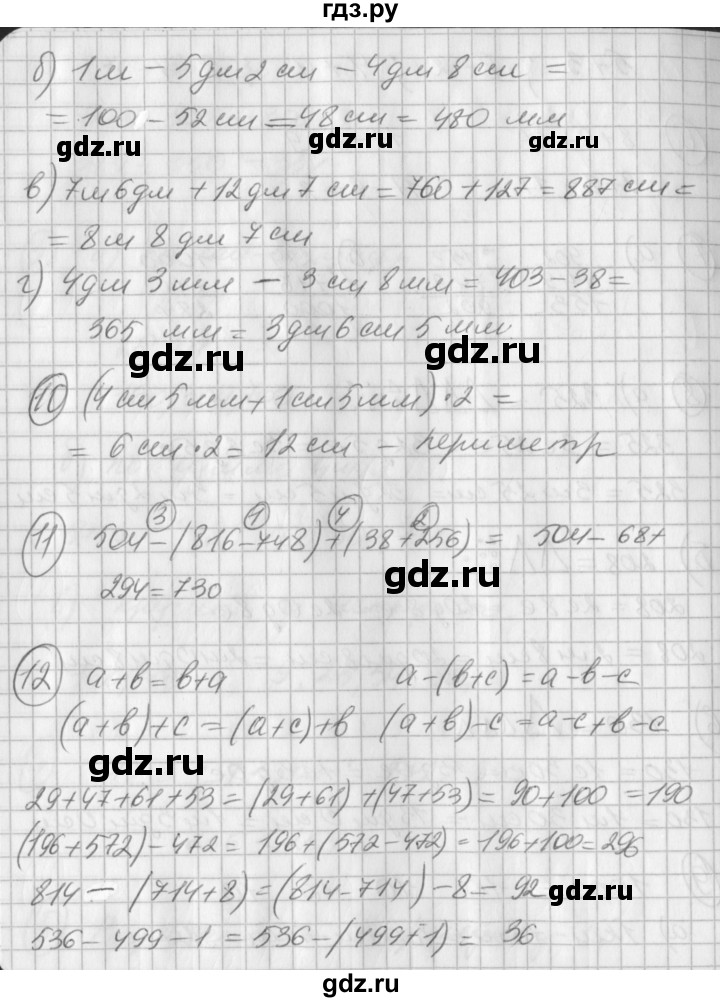 гдз.ру
б) 1м - 5дм 2см - 4дм 8см =
= 100 - 52см = 48см = 480 мм
gdz.ru gdz.ru gdz.ru
в) 7м 6дм + 12дм 7см = 760 + 127 = 887см =
= 8м 8дм 7см
г) 4дм 3мм - 3см 8мм = 403 - 38 =
365 мм = 3дм 6см 5мм
gdz.ru gdz.ru
10 (4см 5мм + 1см 5мм) · 2 =
= 6см · 2 = 12см - периметр
3 1 4 2
11 504 - (816 - 748) + (38 + 256) = 504 - 68 +
294 = 730
gdz.ru
12 a + b = b + a a - (b + c) = a - b - c
(a + b) + c = (a + c) + b (a + b) - c = a - c + b - c
gdz.ru
29 + 47 + 61 + 53 = (29 + 61) + (47 + 53) = 90 + 100 = 190
(196 + 572) - 472 = 196 + (572 - 472) = 196 + 100 = 296
814 - (714 + 8) = (814 - 714) - 8 = 92
gdz.ru
536 - 499 - 1 = 536 - (499 + 1) = 36
gdz.ru gdz.ru
gdz.ru